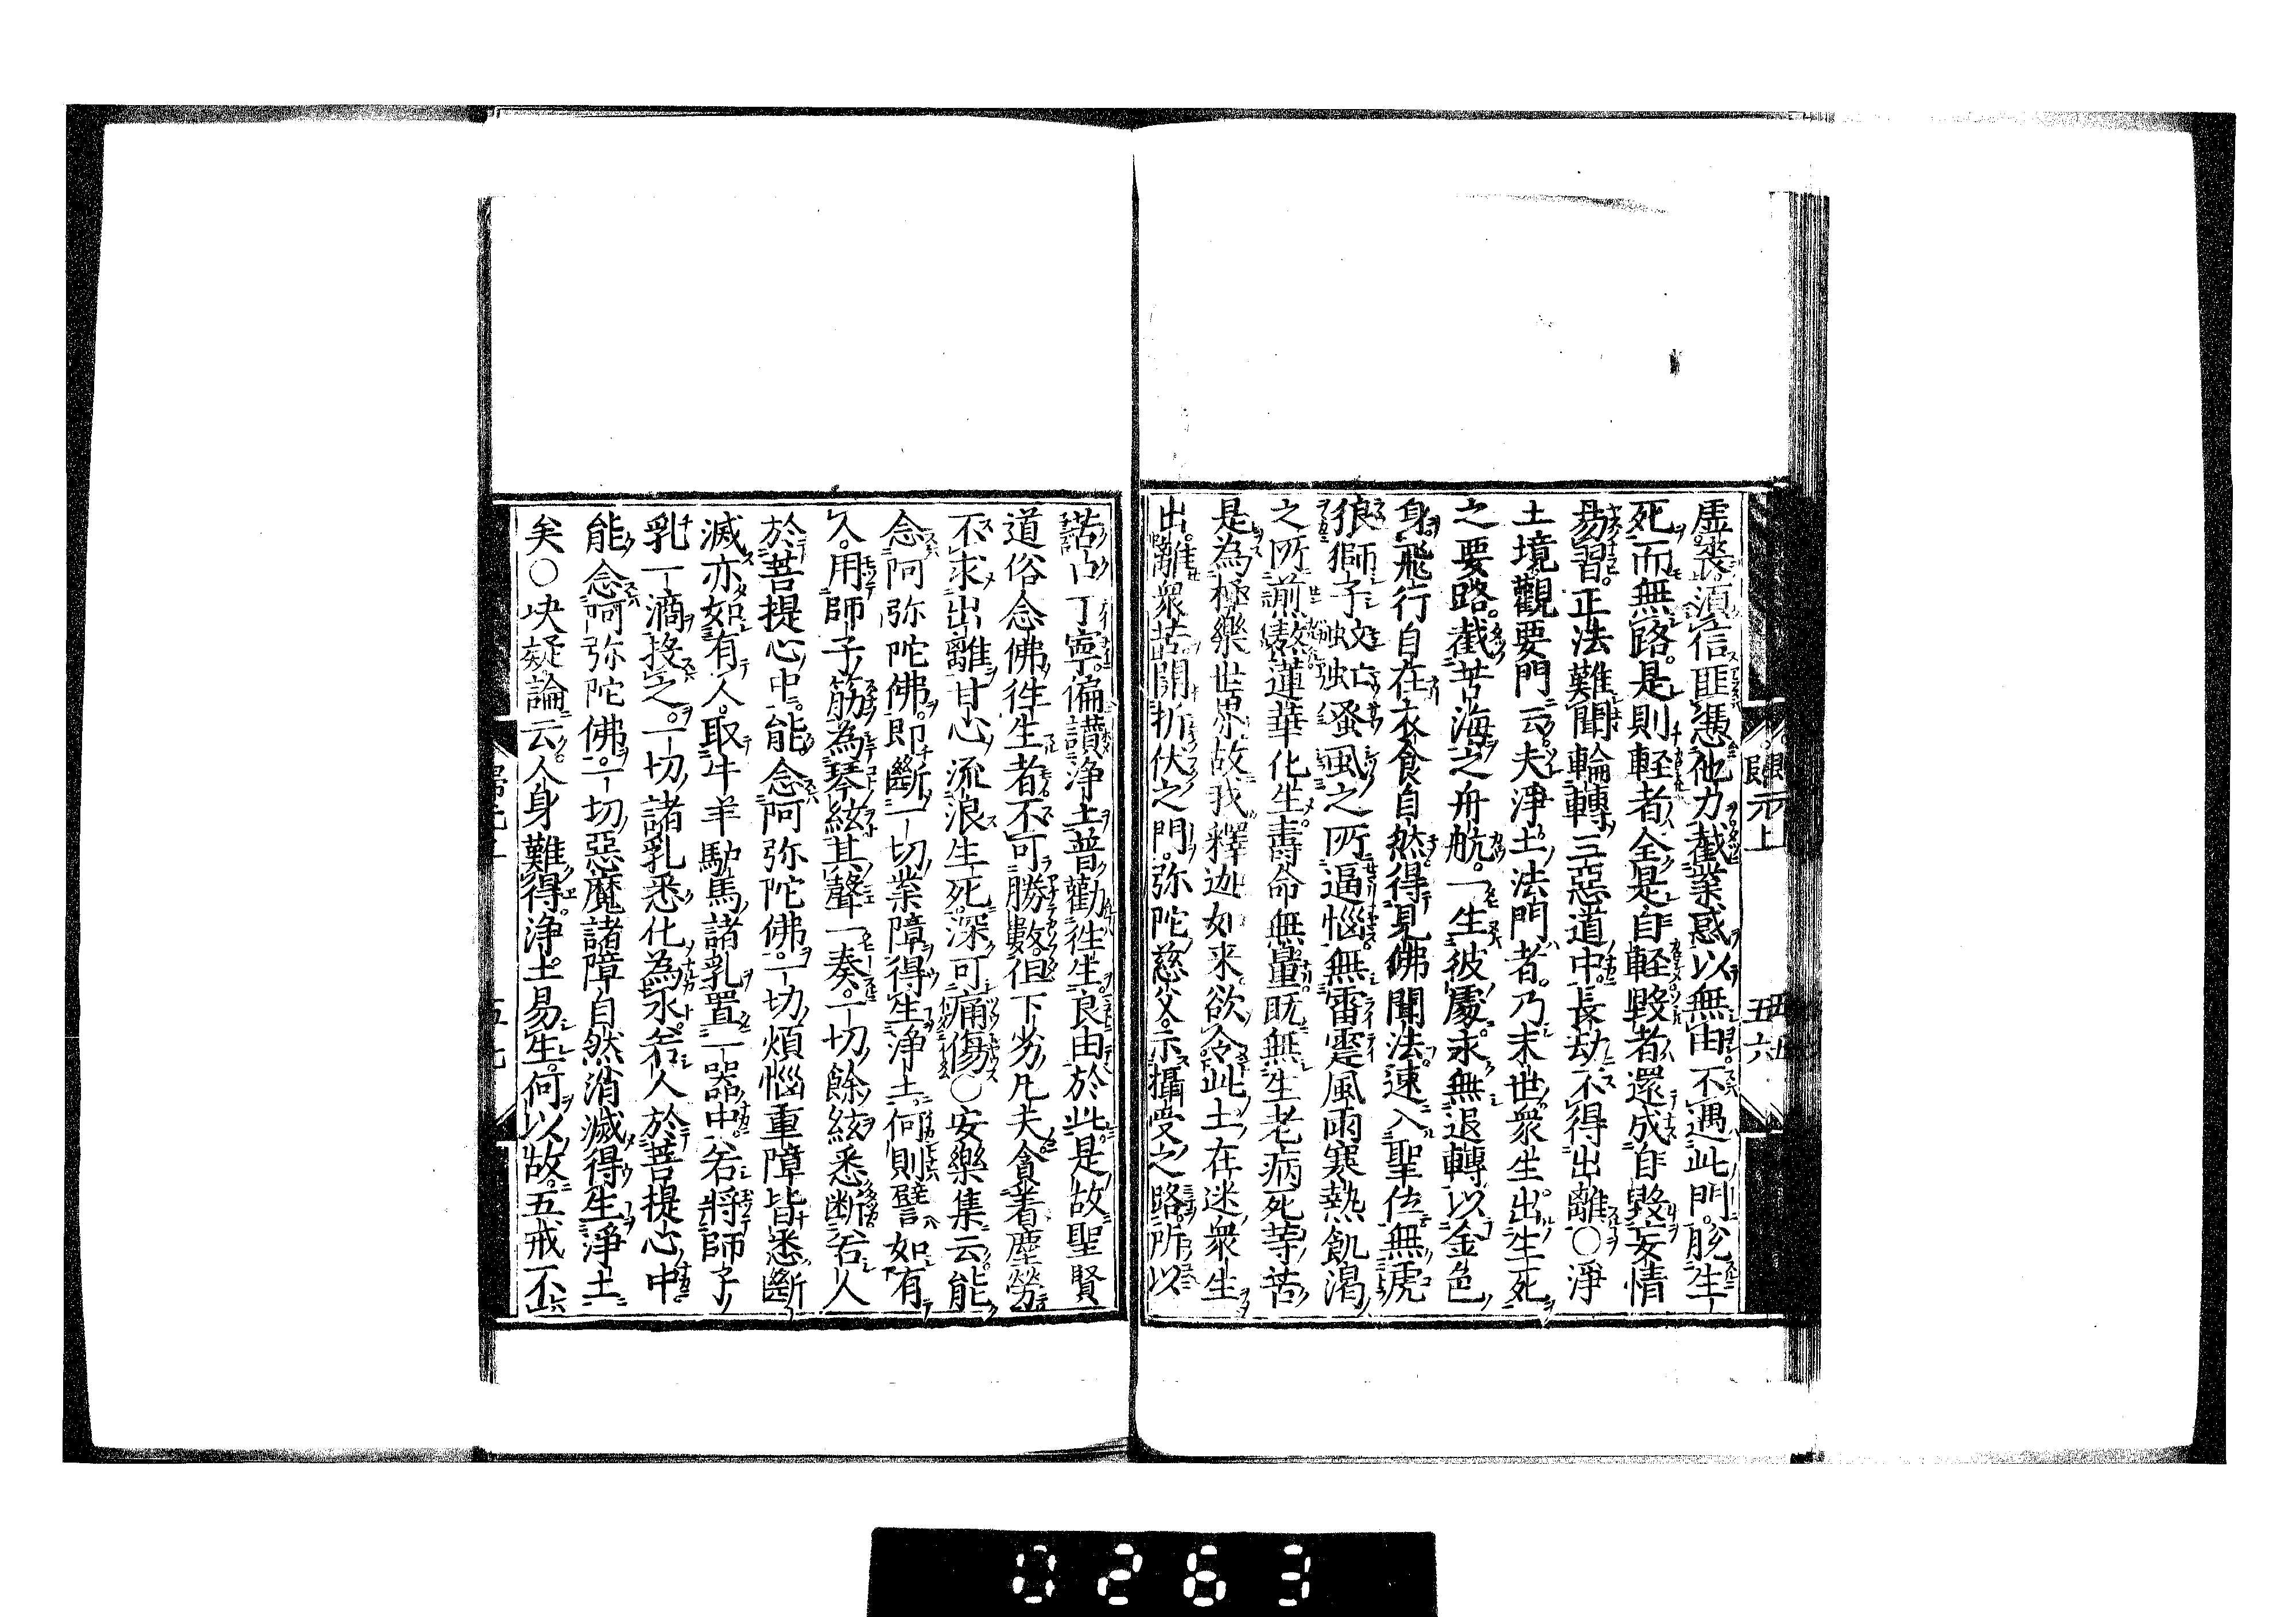 虚喪須信匪憑他力截業惑以無由不遇此門脱生
死而無路是則軽者全是自軽毀者還成自毀妄情
易習正法難聞輪轉三惡道中長劫不得出離○淨
土境觀要門云夫淨土法門者乃末世衆生出生死
之要路截苦海之舟航一生彼處永無退轉以金色
身飛行自在衣食自然得見佛聞法速入聖位無虎
狼師子蚊虻蚤虱之所逼惱無雷霆風雨寒熱飢渇
之所煎熬蓮華化生壽命無量既無生老病死等苦
是為極樂世界故我釋迦如来欲令此土在迷衆生
出離衆苦開折伏之門弥陀慈父示攝受之路所以
歸元上
五六
詰占丁寧偏讃淨土普勸徃生良由於此是故聖賢
道俗念佛徃生者不可勝數但下劣凡夫貪着塵勞
不求出離甘心流浪生死深可痛傷○安樂集云能
念阿弥陀佛即斷一切業障得生淨土何則譬如有
人用師子筋為琴絃其聲一奏一切餘絃悉断若人
於菩提心中能念阿弥陀佛一切煩惱重障皆悉斷
滅亦如有人取牛羊馳馬諸乳置一器中若將師子
乳一滴投之一切諸乳悉化為水若人於菩提心中
能念阿弥陀佛一切惡魔諸障自然消滅得生淨土
矣○决疑論云人身難得淨土易生何以故五戒不
0263